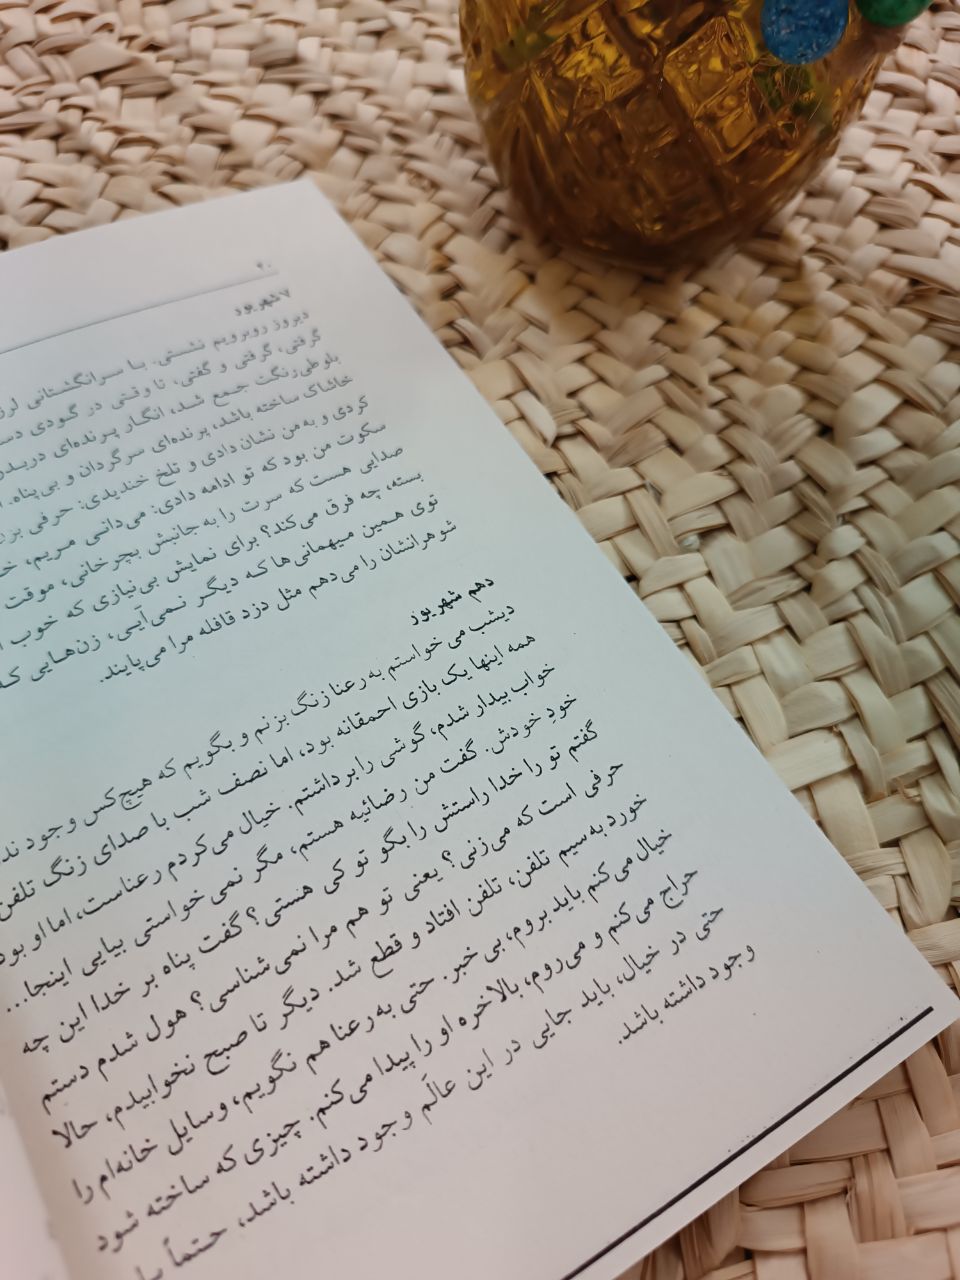 ۴۰
۷ شهریور
دیروز روبرویم نشستی. با سرانگشتانی
گرفتی، گرفتی و گفتی، تا وقتی در گودی
بلوطی‌رنگت جمع شد، انگار پرنده‌ای
خاشاک ساخته باشد، پرنده‌ای سرگردان و بی‌پناه.
کردی و به من نشان دادی و تلخ خندیدی: حرفی
سکوت من بود که تو ادامه دادی: می‌دانی مریم،
صدایی هست که سرت را به جانبش بچرخانی، موقت
بسته، چه فرق می‌کند؟ برای نمایش بی‌نیازی که خوب
توی همین میهمانی‌ها که دیگر نمی‌آیی، زن‌هایی که
شوهرانشان را می‌دهم مثل دزد قافله مرا می‌پایند.
دهم شهریور
دیشب می‌خواستم به رعنا زنگ بزنم و بگویم که هیچ‌کس وجود
همه اینها یک بازی احمقانه بود، اما نصف شب با صدای زنگ تلفن
خواب بیدار شدم، گوشی را برداشتم. خیال می‌کردم رعناست، اما او بود
خودِ خودش. گفت من رضائیه هستم، مگر نمی‌خواستی بیایی اینجا...
گفتم تو را خدا راستش را بگو تو کی هستی؟ گفت پناه بر خدا این چه
حرفی است که می‌زنی؟ یعنی تو هم مرا نمی‌شناسی؟ هول شدم دستم
خورد به سیم تلفن، تلفن افتاد و قطع شد. دیگر تا صبح نخوابیدم، حالا
خیال می‌کنم باید بروم، بی‌خبر. حتی به رعنا هم نگویم، وسایل خانه‌ام را
حراج می‌کنم و می‌روم، بالاخره او را پیدا می‌کنم. چیزی که ساخته شود
حتی در خیال، باید جایی در این عالَم وجود داشته باشد، حتماً
وجود داشته باشد.